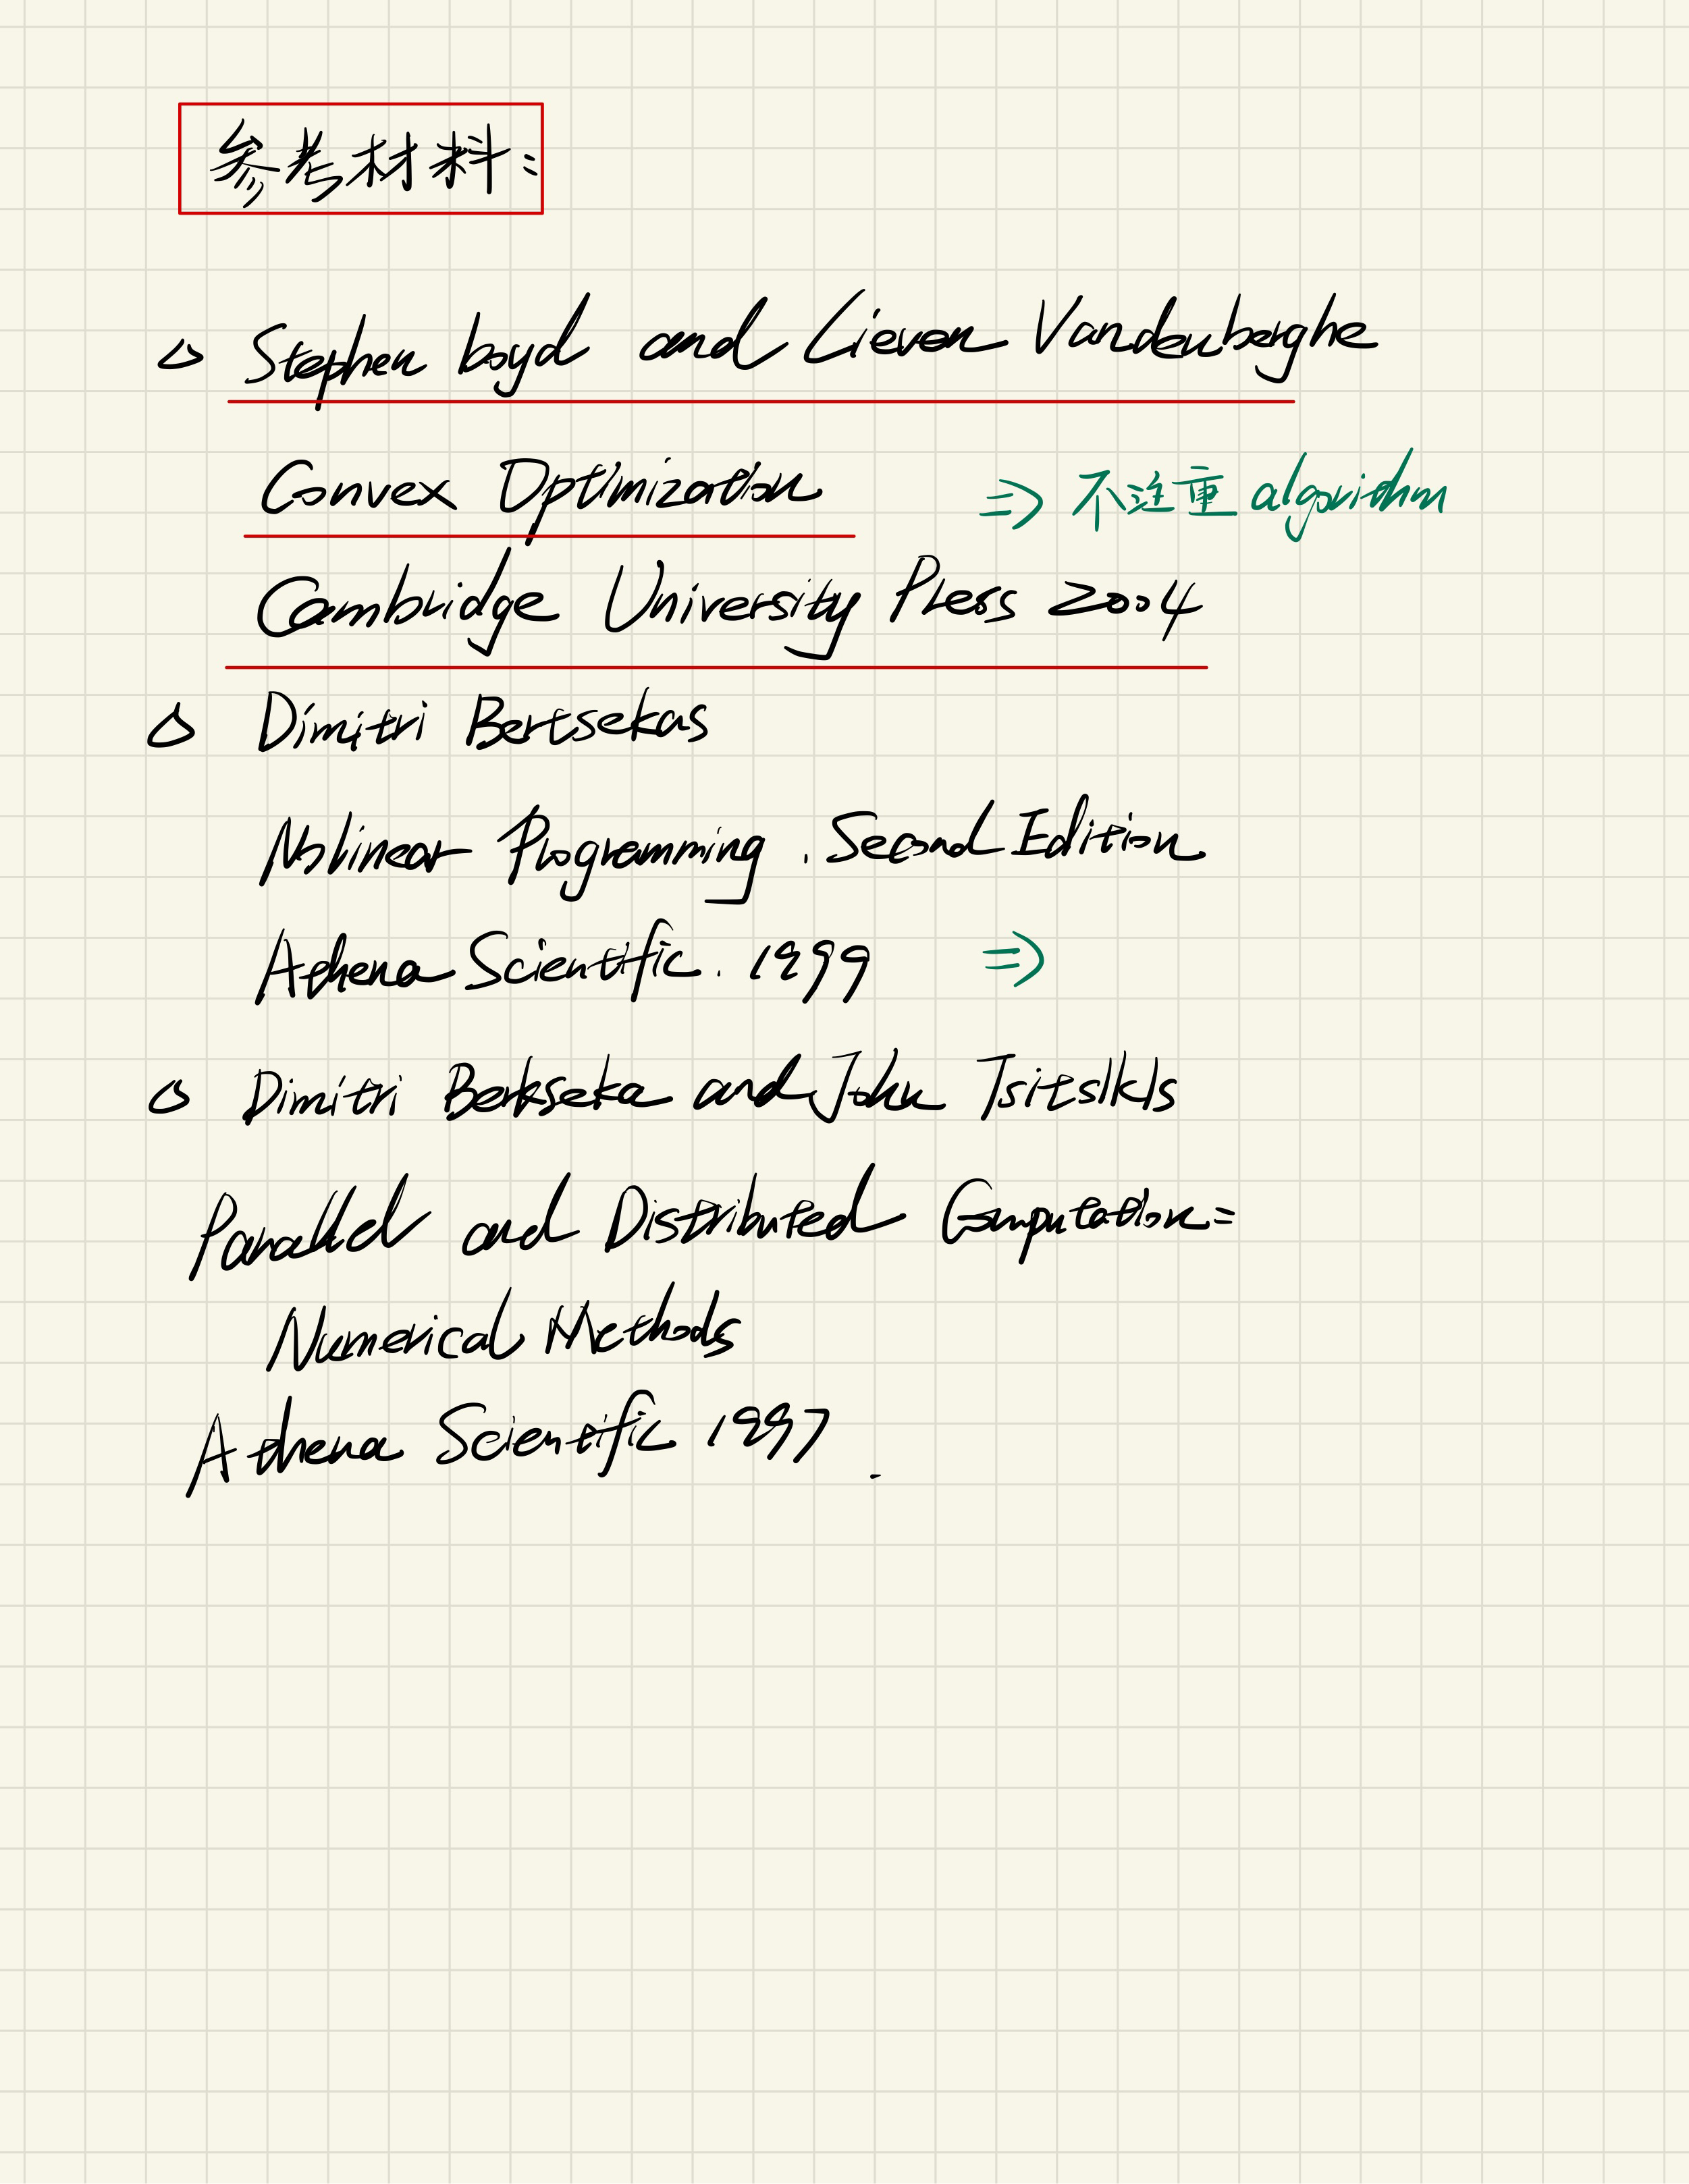 参考材料:
Stephen boyd and Lieven Vandenberghe
Convex Optimization ⇒ 不注重 algorithm
Cambridge University Press 2004
Dimitri Bertsekas
Nolinear Programming . Second Edition
Athena Scientific . 1999 ⇒
Dimitri Bertkseka and John Tsitslkls
Parallel and Distributed Computation:
Numerical Methods
Athena Scientific 1997 .